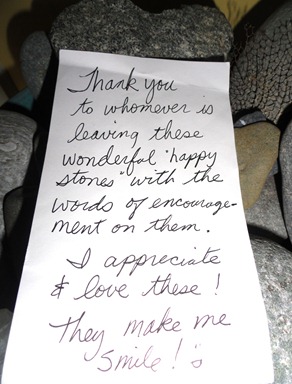 Thank you
to whomever is
leaving these
wonderful "happy
stones" with the
words of encourage-
ment on them.
I appreciate
& love these!
They make me
smile!